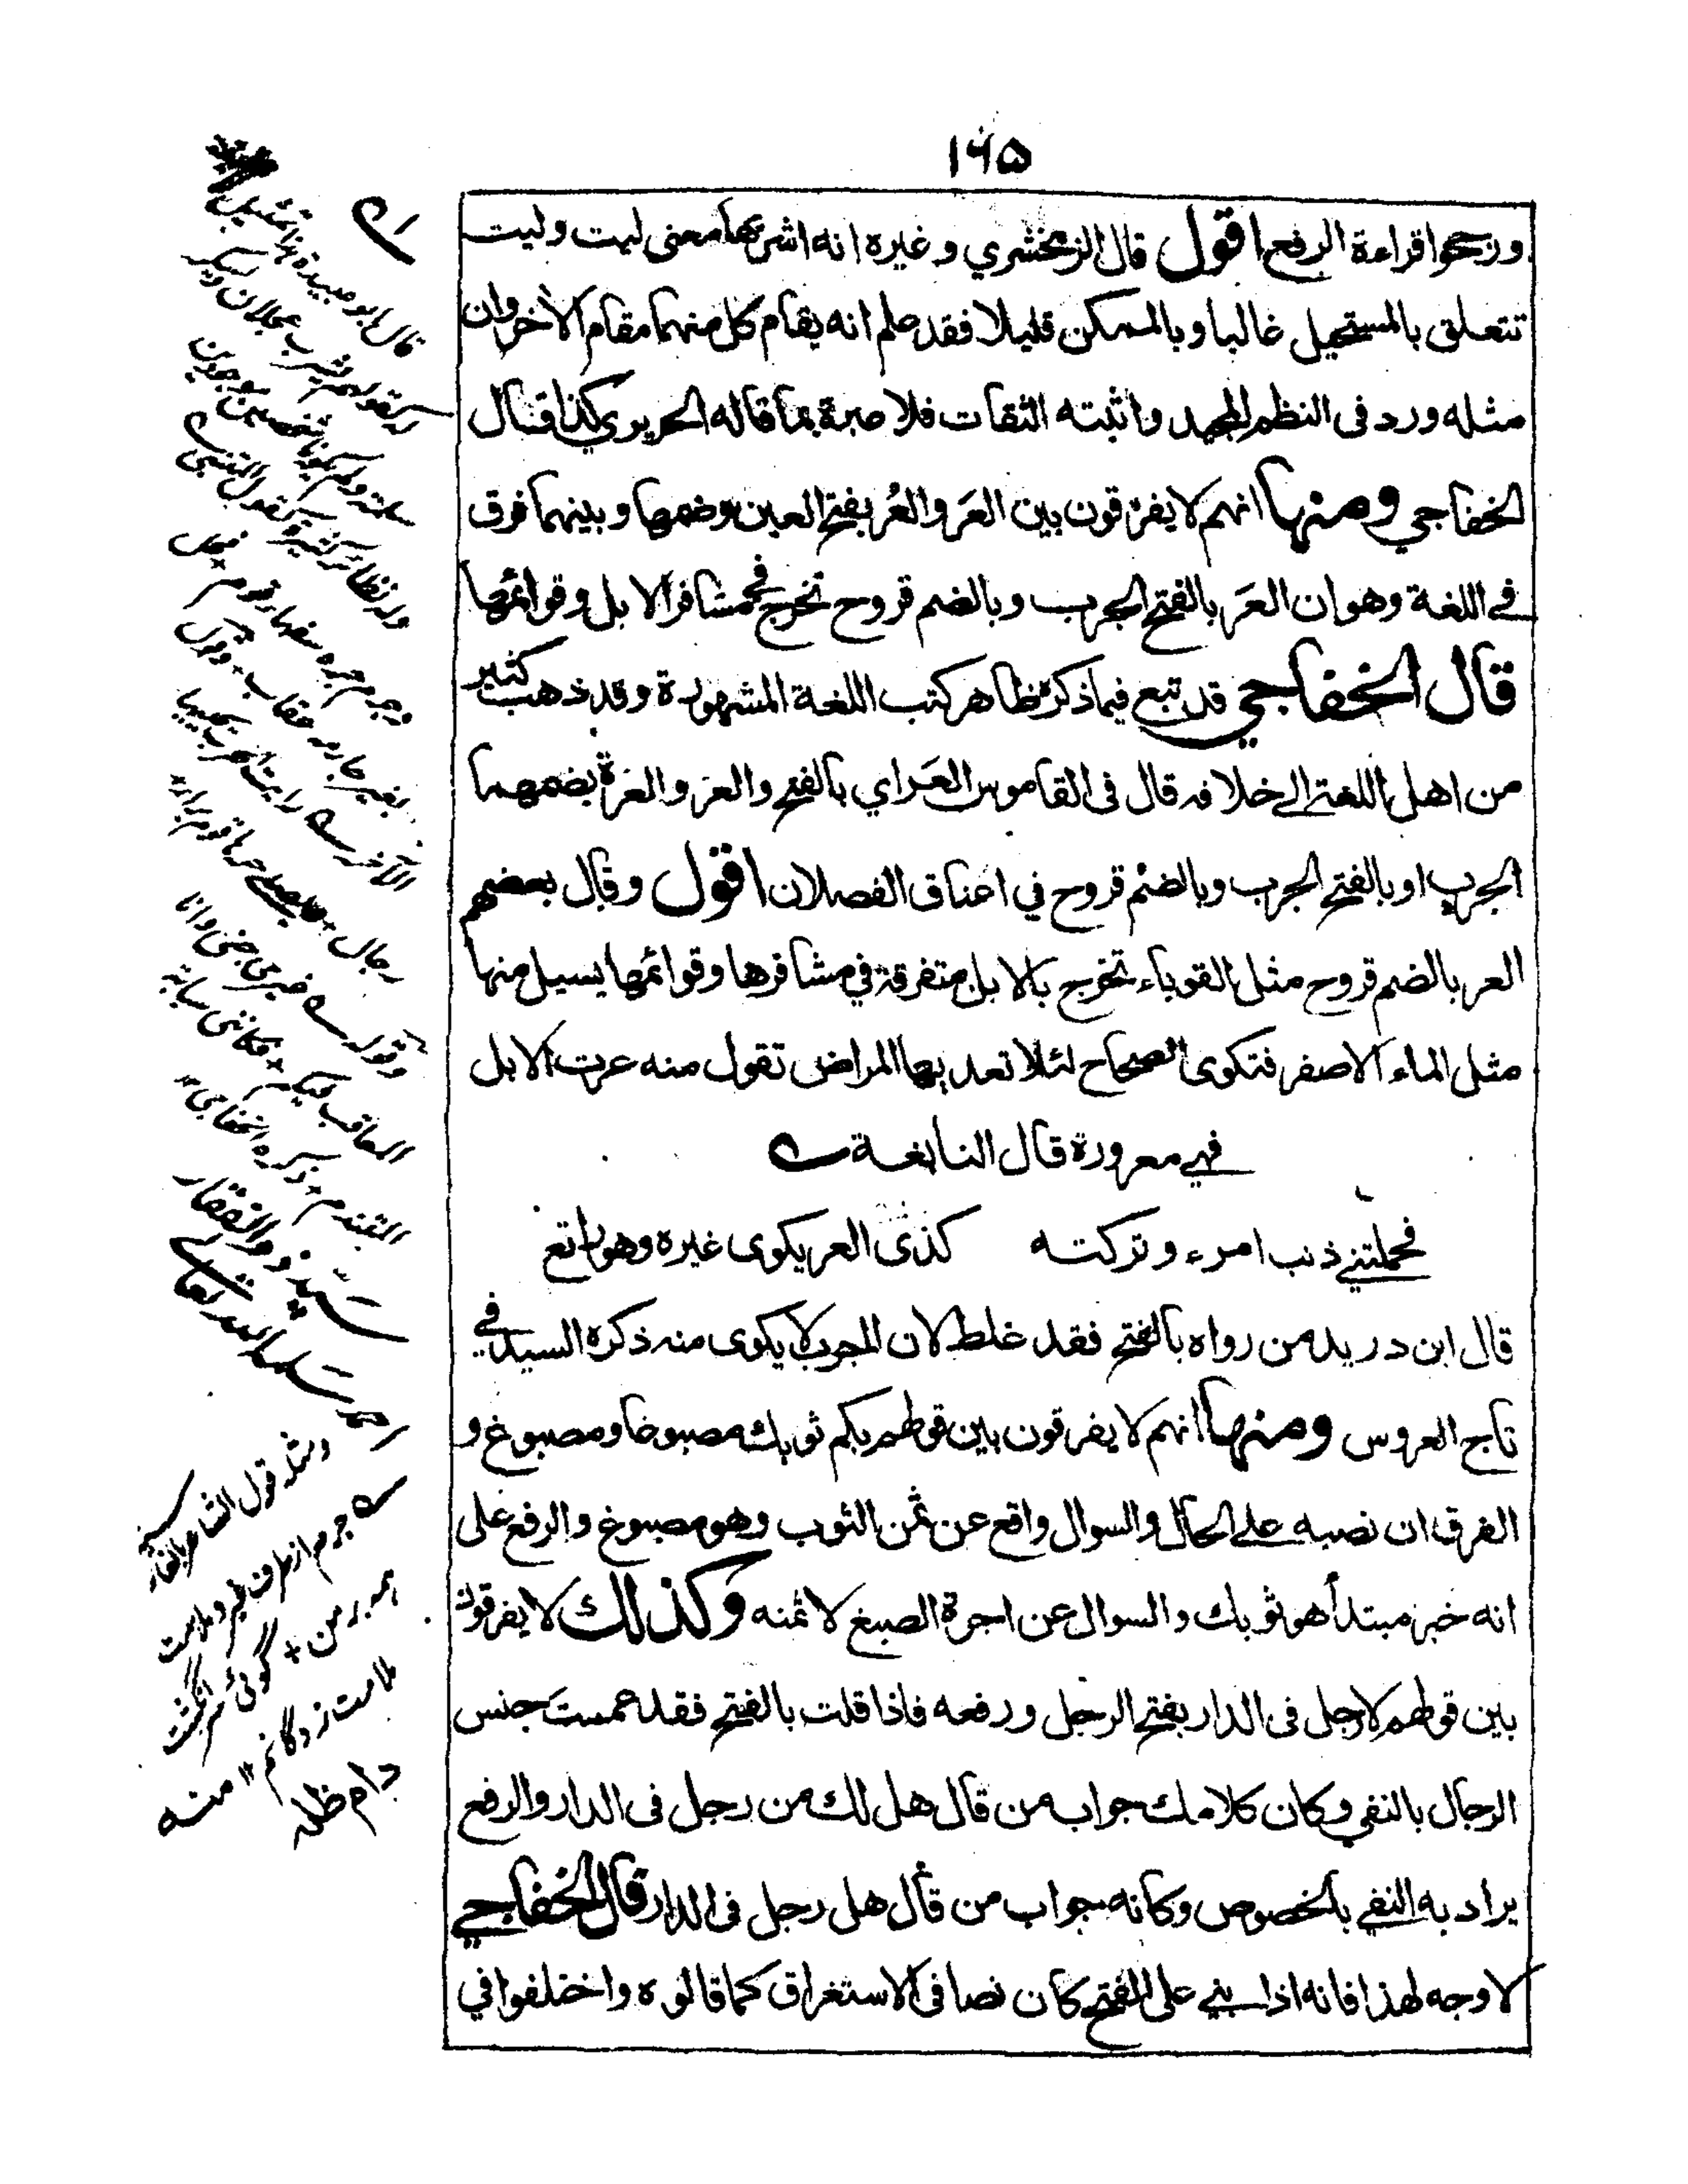 ١٦٥
ورجحوا قراءة الرفع اقول قال الزمخشري وغيره انه اشربها معنى ليت وليت
تتعلق بالمستحيل غالبا وبالممكن قليلا فقد علم انه يقام كل منهما مقام الاخر وان
مثله ورد فى النظم المجيد واثبته الثقات فلا عبرة بما قاله الحريري كذا قال
الخفاجي ومنها انهم لا يفرقون بين العَر والعُر بفتح العين وضمها وبينهما فرق
في اللغة وهو ان العَر بالفتح الجرب وبالضم قروح تخرج في مشافر الابل وقوائمها
قال الخفاجي قد تبع فيما ذكره ظاهر كتب اللغة المشهورة وقد ذهب كثير
من اهل اللغة الى خلافه قال فى القاموس العَر اي بالفتح والعر والعرة بضمهما
الجرب او بالفتح الجرب وبالضم قروح في اعناق الفصلان اقول وقال بعضهم
العر بالضم قروح مثل القوباء تخرج بالابل متفرقة في مشافرها وقوائمها يسيل منها
مثل الماء الاصفر فتكوى الصحاح لئلا تعديها المراض تقول منه عرت الابل
فهي معرورة قال النابغة
فحملتني ذنب امرء وتركته كذى العر يكوى غيره وهو راتع
قال ابن دريد من رواه بالفتح فقد غلط لان الجرب لا يكوى منه ذكره السيد في
تاج العروس ومنها انهم لا يفرقون بين قولهم بكم ثوبك مصبوغا ومصبوغ و
الفرق ان نصبه على الحال والسوال واقع عن ثمن الثوب وهو مصبوغ والرفع على
انه خبر مبتدأ هو ثوبك والسوال عن اجرة الصبغ لا ثمنه وكذلك لا يفرقون
بين قولهم لا رجل فى الدار بفتح الرجل ورفعه فاذا قلت بالفتح فقد عممت جنس
الرجال بالنفي وكان كلامك جواب من قال هل لك من رجل فى الدار والرفع
يراد به النفي بالخصوص وكانه جواب من قال هل رجل فى الدار قال الخفاجي
لا وجه لهذا فانه اذا بني على الفتح كان نصا فى الاستغراق كما قالوه واختلفوا في
قال ابو عبيدة
يشرب عجلان ويسكر
وله نظائر كثيرة كقول المتنبي
وجرم جره سفهاء قوم فحل
بغير جارمه عقاب وقول
الآخر رأيت الحرب يجنيها
رجال ويصلى حرها قوم براء
وقوله غيري جنى وانا
المعاقب فيكم فكأنني سبابة
المتندم ذكره الخفاجي
سيد ذو الفقار
احمد سلمه الله تعالى
ومثله قول الشاعر بالفارسية
جرم از طرف غير و ملامت
همه بر من گوئى سر انگشت
ملامت زدگانم منه
دام ظله